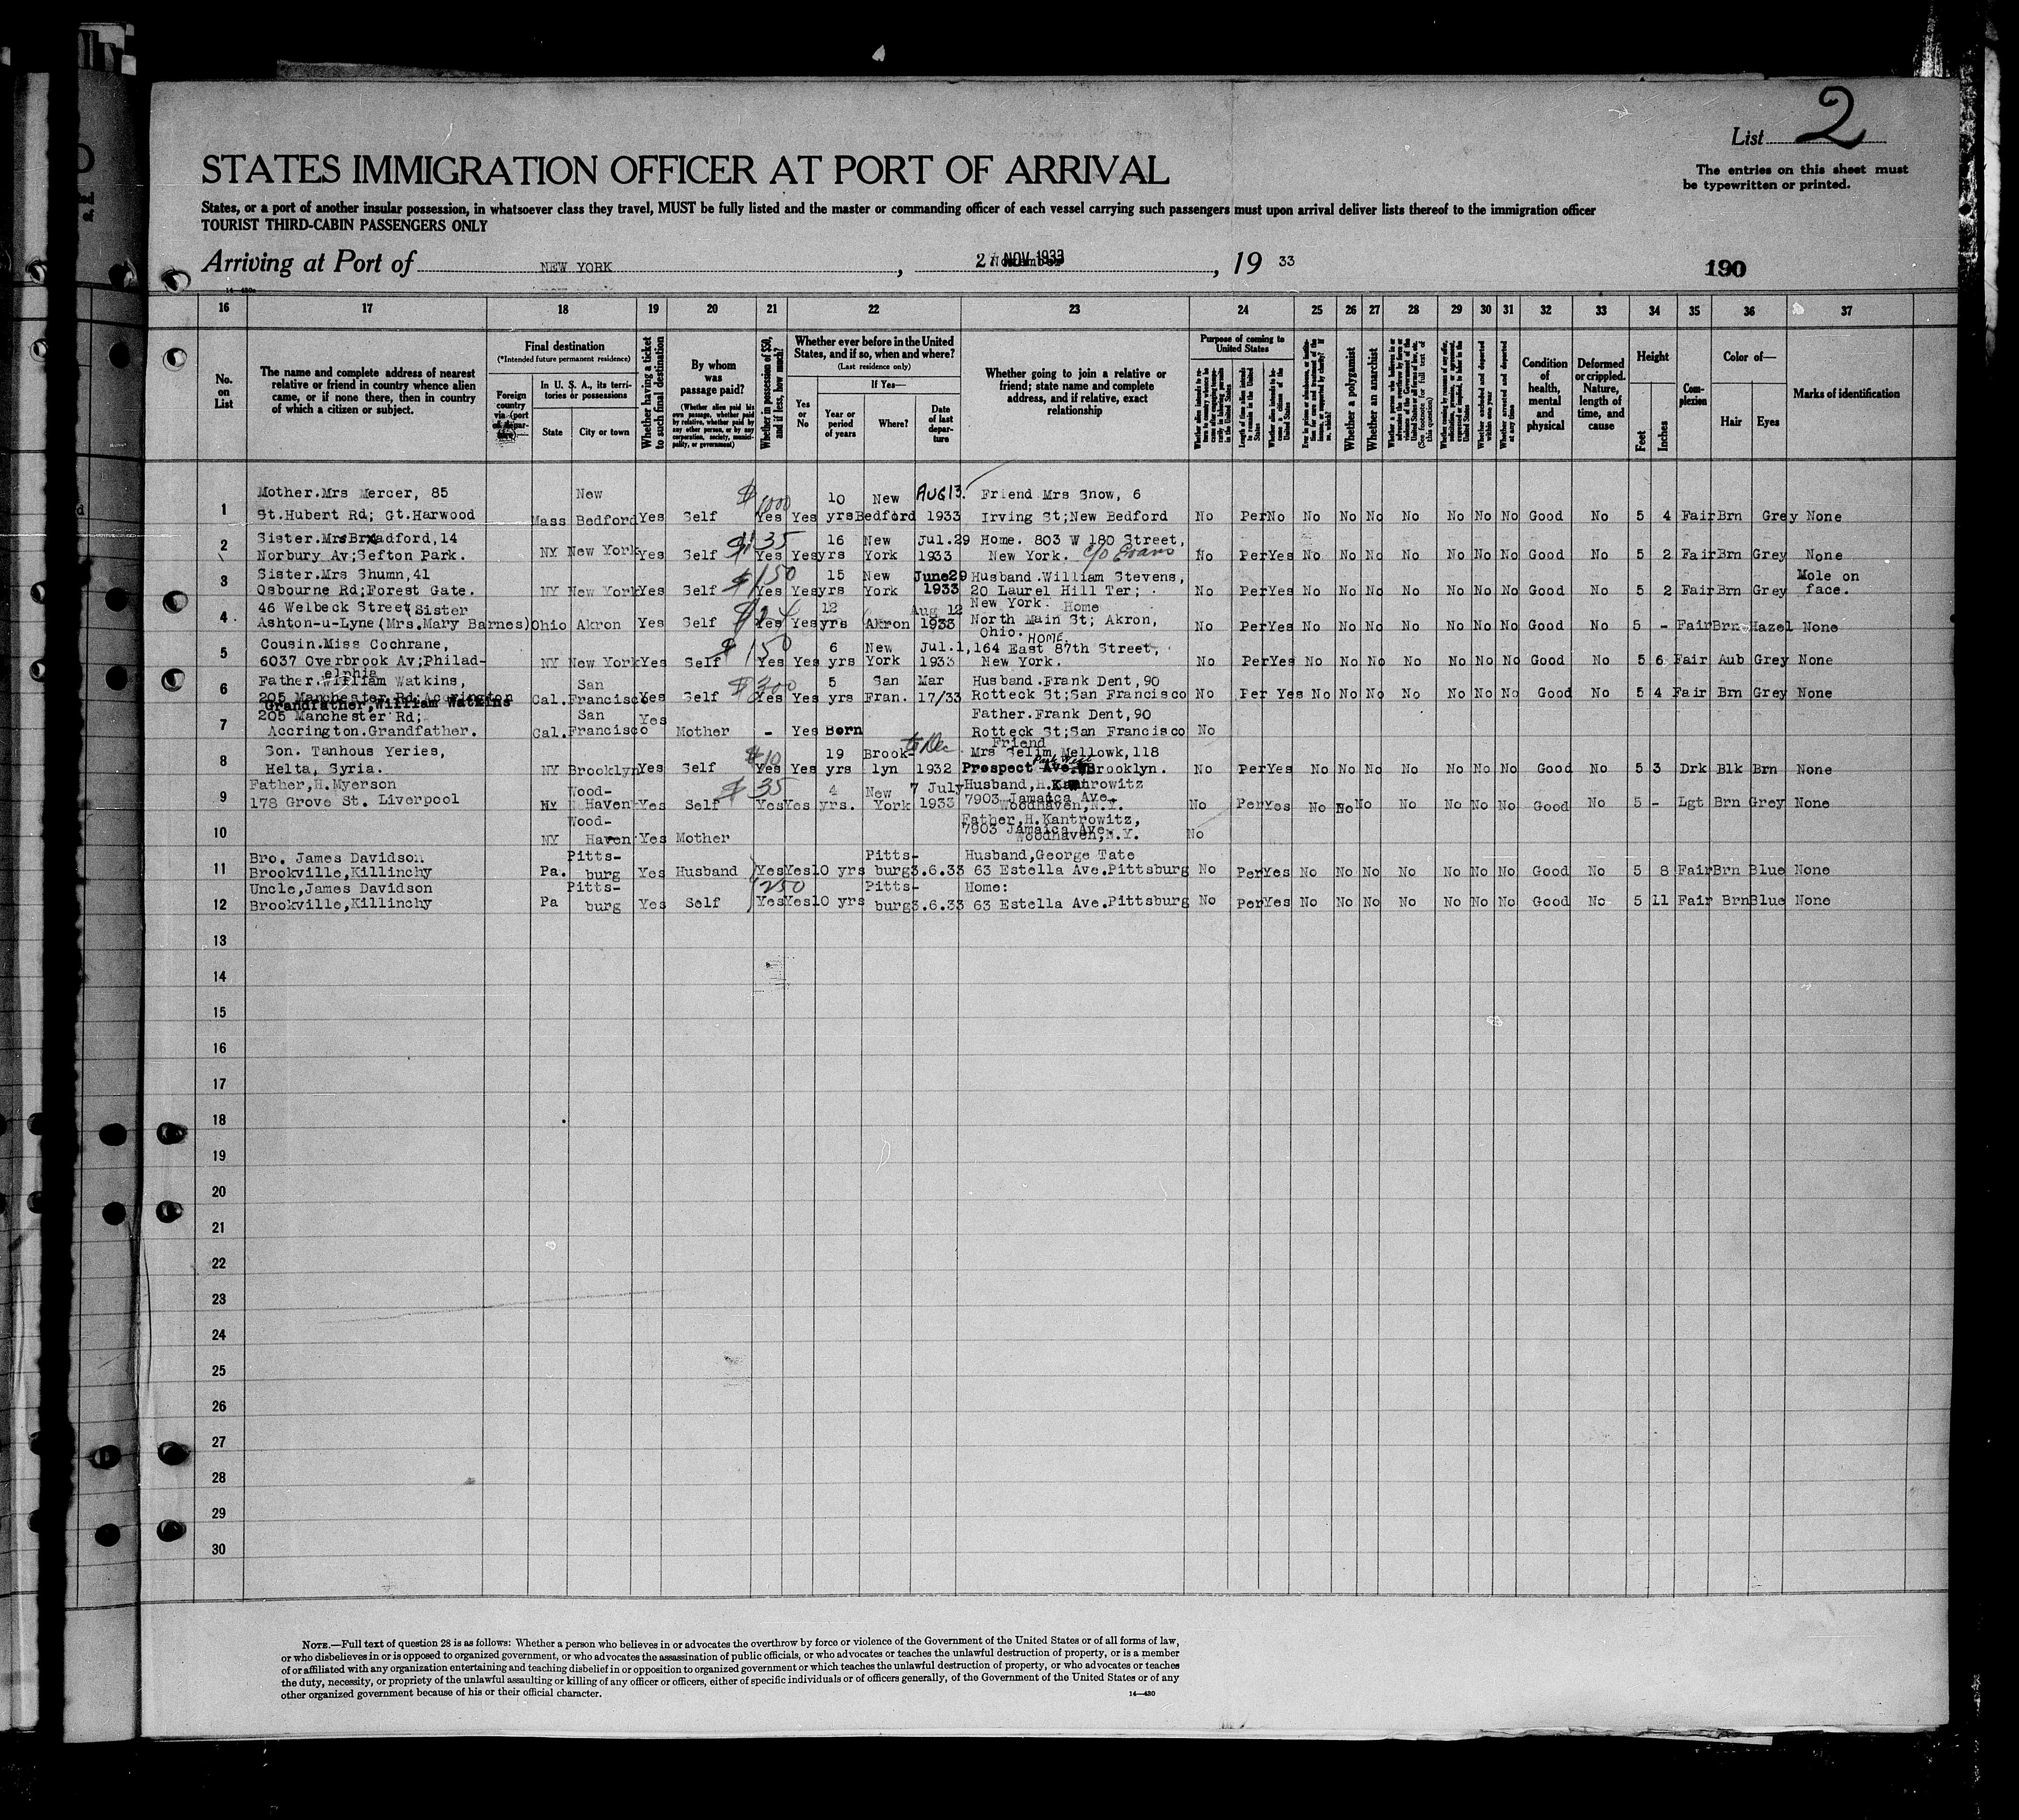 List 2
The entries on this sheet must
be typewritten or printed.
STATES IMMIGRATION OFFICER AT PORT OF ARRIVAL
States, or a port of another insular possession, in whatsoever class they travel, MUST be fully listed and the master or commanding officer of each vessel carrying such passengers must upon arrival deliver lists thereof to the immigration officer
TOURIST THIRD-CABIN PASSENGERS ONLY
Arriving at Port of NEW YORK, 2 NOV 1933, 19 33
190
16 17 18 19 20 21 22 23 24 25 26 27 28 29 30 31 32 33 34 35 36 37
No. on List
The name and complete address of nearest
relative or friend in country whence alien
came, or if none there, then in country
of which a citizen or subject.
Final destination
(*Intended future permanent residence)
Foreign country via (port of depar-ture)
In U. S. A., its terri-
tories or possessions
State
City or town
Whether having a ticket
to such final destination
By whom
was
passage paid?
(Whether alien paid his
own passage, whether paid
by relative, whether paid by
any other person, or by any
corporation, society, munici-
pality, or government)
Whether in possession of $50,
and if less, how much?
Whether ever before in the United
States, and if so, when and where?
(Last residence only)
Yes or No
If Yes—
Year or period of years
Where?
Date of last depar-ture
Whether going to join a relative or
friend; state name and complete
address, and if relative, exact
relationship
Purpose of coming to
United States
Length of time alien intends to remain in the United States
Whether alien intends to be-come a citizen of the United States
Whether a polygamist
Whether an anarchist
(See footnote for full text of this question)
Whether excluded and deported within one year
Whether arrested and deported at any time
Condition of health, mental and physical
Deformed or crippled. Nature, length of time, and cause
Height
Feet
Inches
Com-plexion
Color of—
Hair
Eyes
Marks of identification
1 Mother.Mrs Mercer, 85 New $1000 10 New AUG 13. Friend Mrs Snow, 6
St.Hubert Rd; Gt.Harwood Mass Bedford Yes Self Yes Yes yrs Bedford 1933 Irving St;New Bedford No Per No No No No No No No No Good No 5 4 Fair Brn Grey None
2 Sister.Mrs Bradford,14 $135 16 New Jul.29 Home. 803 W 180 Street,
Norbury Av;Sefton Park. NY New York Yes Self Yes Yes yrs York 1933 New York. c/o Evans No Per Yes No No No No No No No Good No 5 2 Fair Brn Grey None
3 Sister.Mrs Shumn,41 $150 15 New June29 Husband.William Stevens, Mole on
Osbourne Rd;Forest Gate. NY New York Yes Self Yes Yes yrs York 1933 20 Laurel Hill Ter; No Per Yes No No No No No No No Good No 5 2 Fair Brn Grey face.
New York.
4 46 Welbeck Street Sister 12 Aug 12 Home
Ashton-u-Lyne (Mrs.Mary Barnes) Ohio Akron Yes Self Yes Yes yrs Akron 1933 North Main St; Akron, No Per Yes No No No No No No No Good No 5 - Fair Brn Hazel None
Ohio.
5 Cousin.Miss Cochrane, $150 6 New Jul.1, HOME. 164 East 87th Street,
6037 Overbrook Av;Philad- NY New York Yes Self Yes Yes yrs York 1933 New York. No Per Yes No No No No No No No Good No 5 6 Fair Aub Grey None
elphia
6 Father.William Watkins, San $300 5 San Mar Husband.Frank Dent,90
205 Manchester Rd;Accrington Cal. Francisco Yes Self Yes Yes yrs Fran. 17/33 Rotteck St;San Francisco No Per Yes No No No No No No No Good No 5 4 Fair Brn Grey None
Grandfather,William Watkins
7 205 Manchester Rd; San Yes Father.Frank Dent,90
Accrington.Grandfather. Cal. Francisco Mother - Yes Born Rotteck St;San Francisco No
8 Son. Tanhous Yeries, $10 19 Brook- to Dec. Friend Mrs Selim Mellowk,118
Helta, Syria. NY Brooklyn Yes Self Yes Yes yrs lyn 1932 Prospect Park West Ave. Brooklyn. No Per Yes No No No No No No No Good No 5 3 Drk Blk Brn None
9 Father,H.Myerson Wood- $35 4 New 7 July Husband,H.Kantrowitz
178 Grove St. Liverpool NY Haven Yes Self Yes Yes yrs. York 1933 7903 Jamaica Ave. No Per Yes No No No No No No No Good No 5 - Lgt Brn Grey None
Woodhaven,N.Y.
10 Wood- Father,H.Kantrowitz,
7903 Jamaica Ave.
NY Haven Yes Mother Woodhaven,N.Y. No
11 Bro. James Davidson Pitts- Pitts- Husband,George Tate
Brookville,Killinchy Pa. burg Yes Husband Yes Yes 10 yrs burg 3.6.33 63 Estella Ave.Pittsburg No Per Yes No No No No No No No Good No 5 8 Fair Brn Blue None
12 Uncle,James Davidson Pitts- $250 Pitts- Home:
Brookville,Killinchy Pa burg Yes Self Yes Yes 10 yrs burg 3.6.33 63 Estella Ave.Pittsburg No Per Yes No No No No No No No Good No 5 11 Fair Brn Blue None
13
14
15
16
17
18
19
20
21
22
23
24
25
26
27
28
29
30
NOTE.—Full text of question 28 is as follows: Whether a person who believes in or advocates the overthrow by force or violence of the Government of the United States or of all forms of law,
or who disbelieves in or is opposed to organized government, or who advocates the assassination of public officials, or who advocates or teaches the unlawful destruction of property, or is a member
of or affiliated with any organization entertaining and teaching disbelief in or opposition to organized government or which teaches the unlawful destruction of property, or who advocates or teaches
the duty, necessity, or propriety of the unlawful assaulting or killing of any officer or officers, either of specific individuals or of officers generally, of the Government of the United States or of any
other organized government because of his or their official character.
14—430